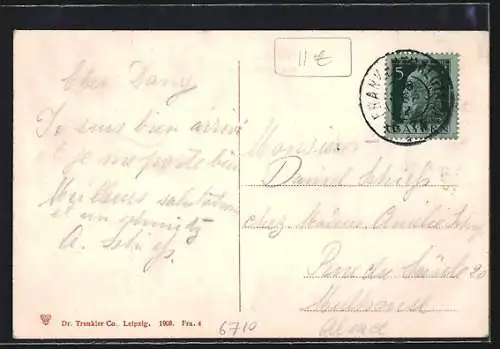 11 €
5
FRANK
BAYERN
Cher Dany
Je suis bien arrivé
et je me porte bien
Meilleures salutations
et un schmutz
A. Schiess.
Monsieur
Daniel Schiess
chez Madame Amélie
Rue du 20
Mulhouse
Alsace
Dr. Trenkler Co., Leipzig. 1908. Fra. 4
6710